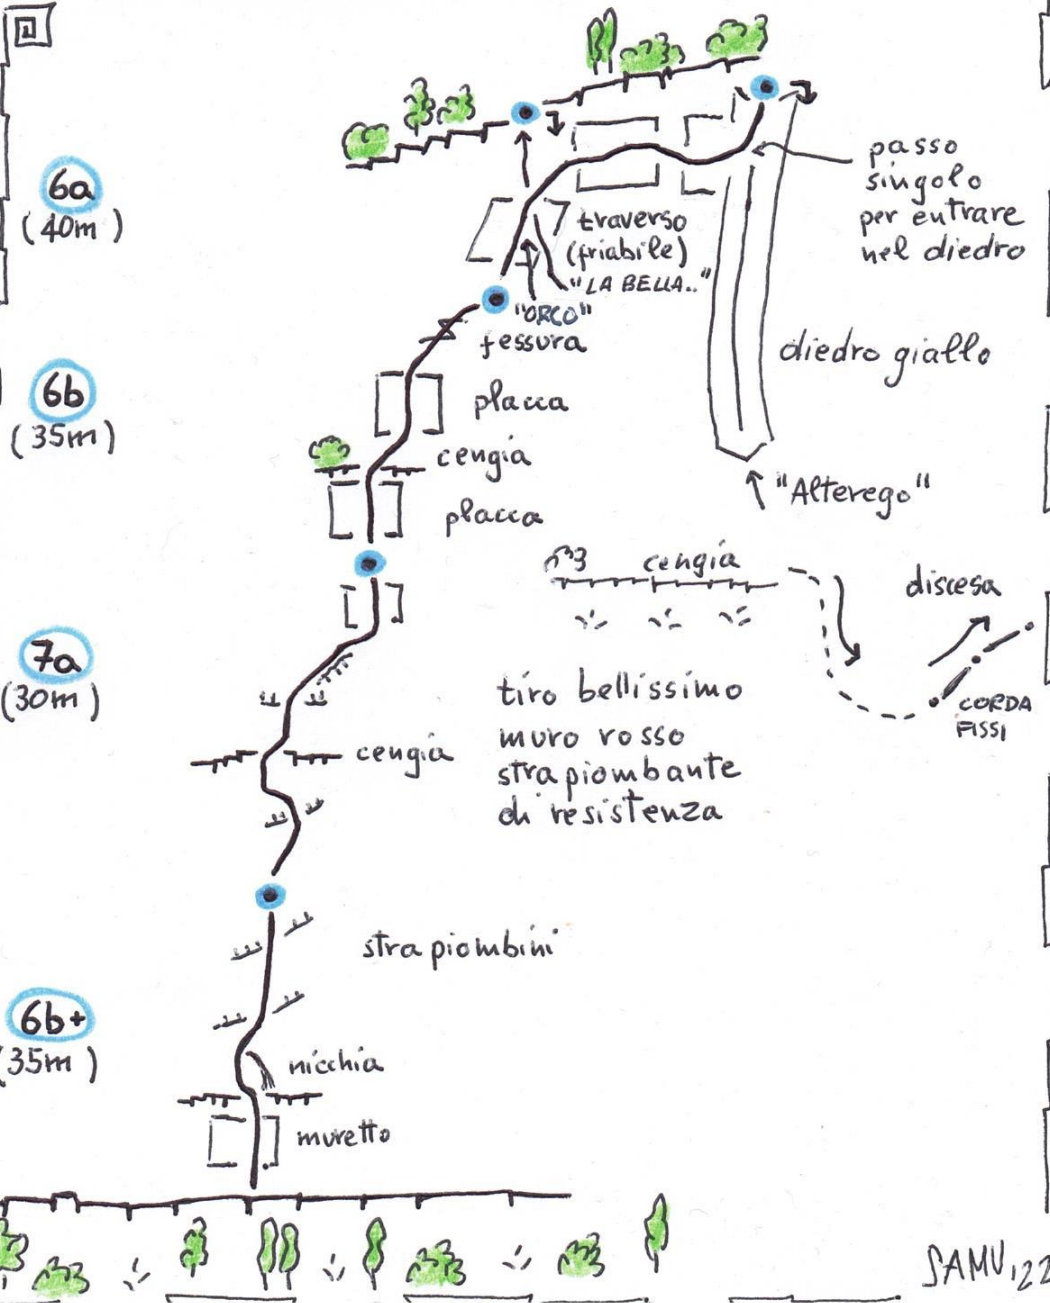 6a
(40m)
passo
singolo
per entrare
nel diedro
traverso
(friabile)
"LA BELLA.."
"ORCO"
fessura
diedro giallo
6b
(35m)
placca
cengia
placca
"Alterego"
cengia
discesa
CORDA
FISSI
7a
(30m)
tiro bellissimo
muro rosso
strapiombante
di resistenza
cengia
strapiombini
6b+
35m)
nicchia
muretto
SAMU,22